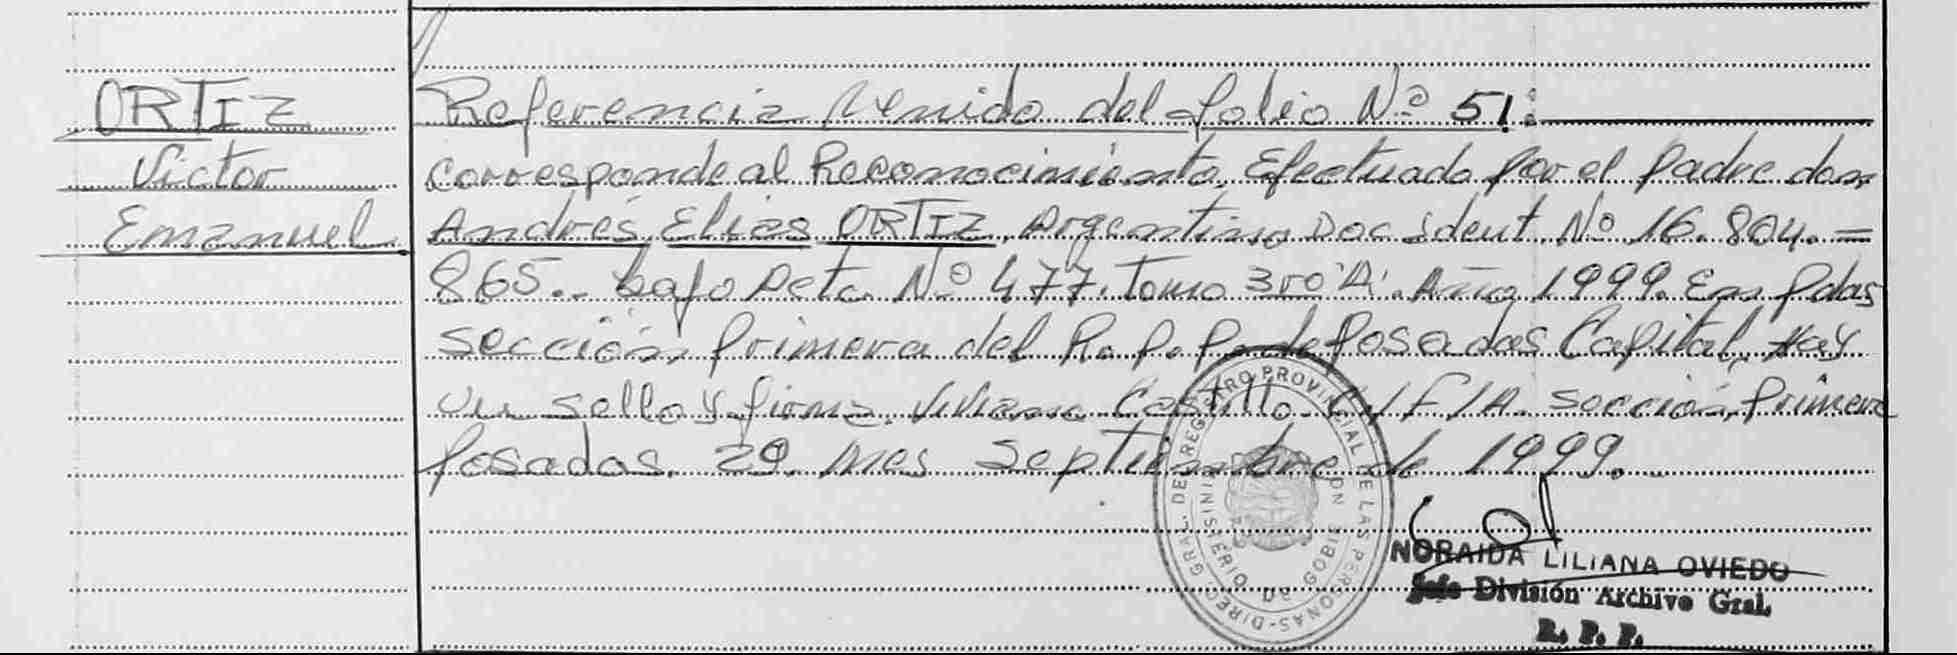 ORTIZ
Victor
Emanuel
Referencia Venido del folio Nº 51:
corresponde al Reconocimiento, Efectuado por el padre don
Andrés Elias ORTIZ, Argentino Doc Ident Nº 16.804.=
865.- bajo Acta Nº 477. Tomo 3ro "A". Año 1999. En Pdas
sección Primera del R.P.P. de Posadas Capital, Hay
un sello y firma. Viviana Castillo. /F/A. sección, Primera
Posadas. 29. Mes Septiembre de 1999.
DIREC. GRAL. DE REGISTRO PROVINCIAL DE LAS PERSONAS
MINISTERIO DE GOBIE
NORAIDA LILIANA OVIEDO
Jefe División Archivo Gral.
R. P. P.